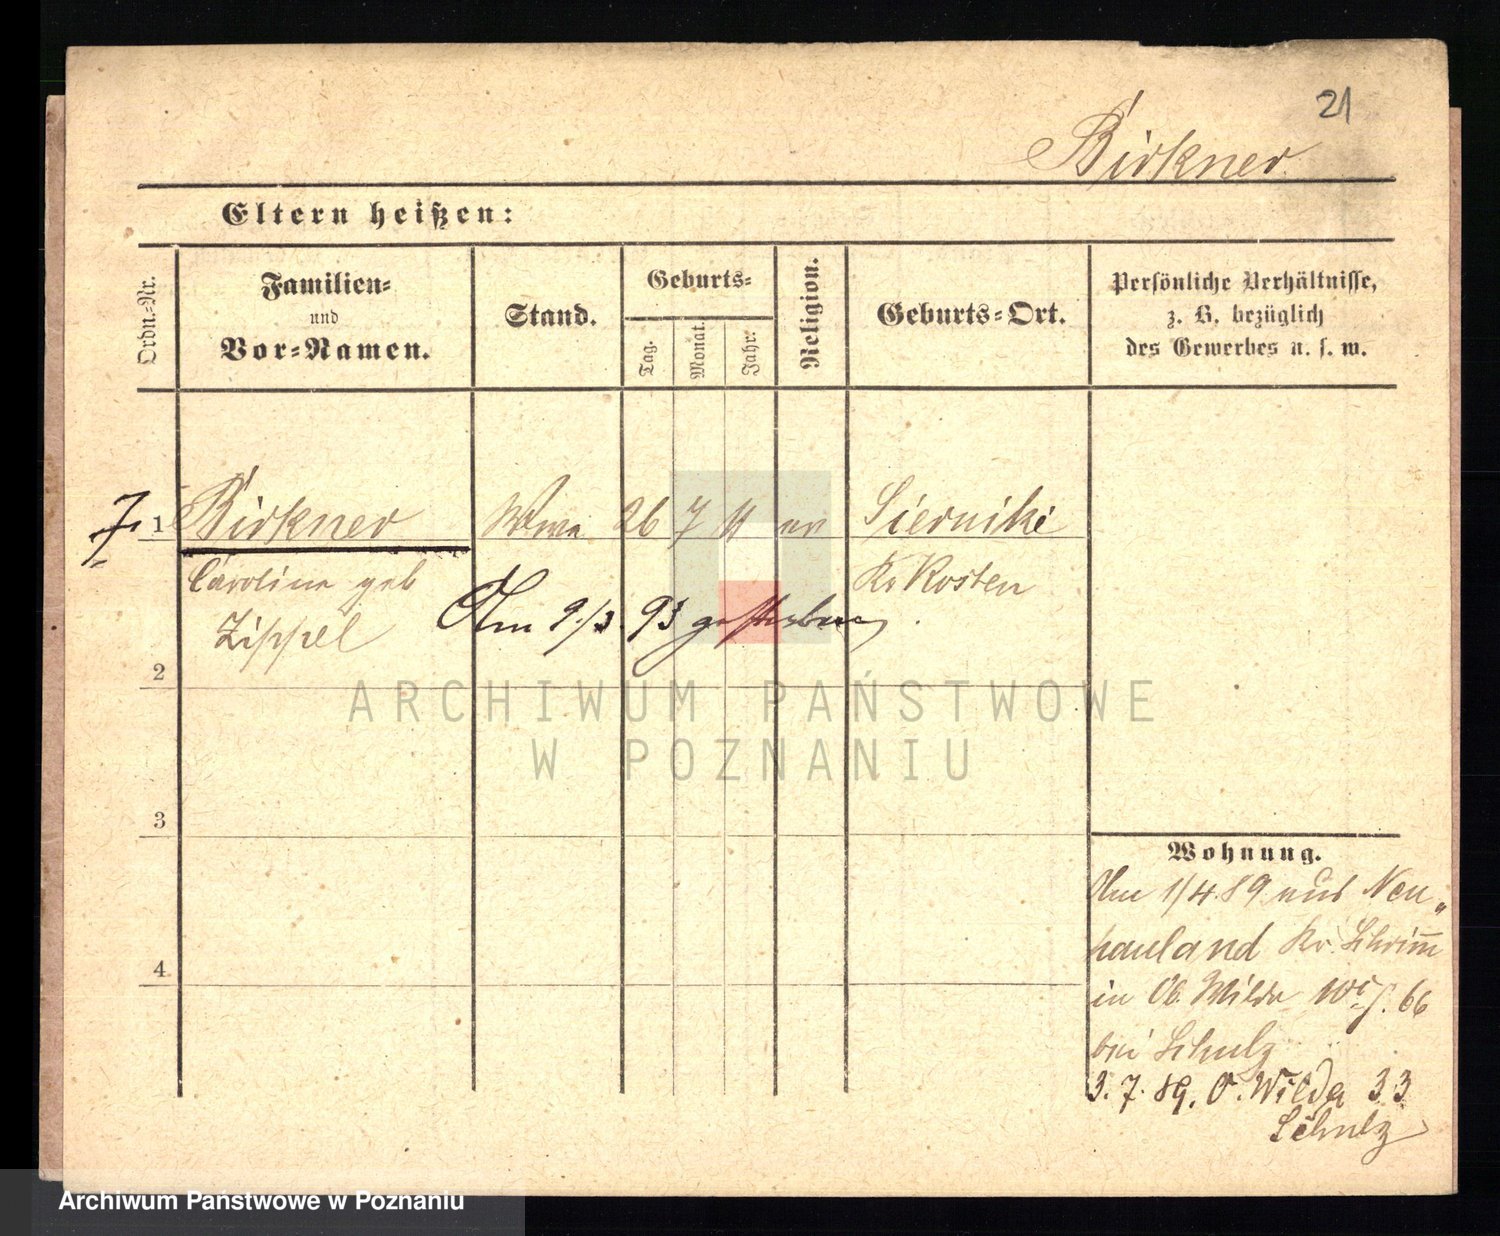 21
Birkner
Eltern heißen:
Ordn.-Nr.
Familien-
und
Vor-Namen.
Stand.
Geburts-
Tag.
Monat.
Jahr.
Religion.
Geburts-Ort.
Persönliche Verhältnisse,
z. B. bezüglich
des Gewerbes u. s. w.
1 Birkner Wwe 26 7 11 ev Siernike
Caroline geb Kr Kosten
Zippel
Am 9./3. 93 gestorben
2
3
4
ARCHIWUM PAŃSTWOWE
W POZNANIU
Wohnung.
Am 1/4 89 aus Neu-
hauland Kr. Schrimm
in Ob. Wilda 66
bei Schulz
3.7.89. O. Wilda 33
Schulz
Archiwum Państwowe w Poznaniu